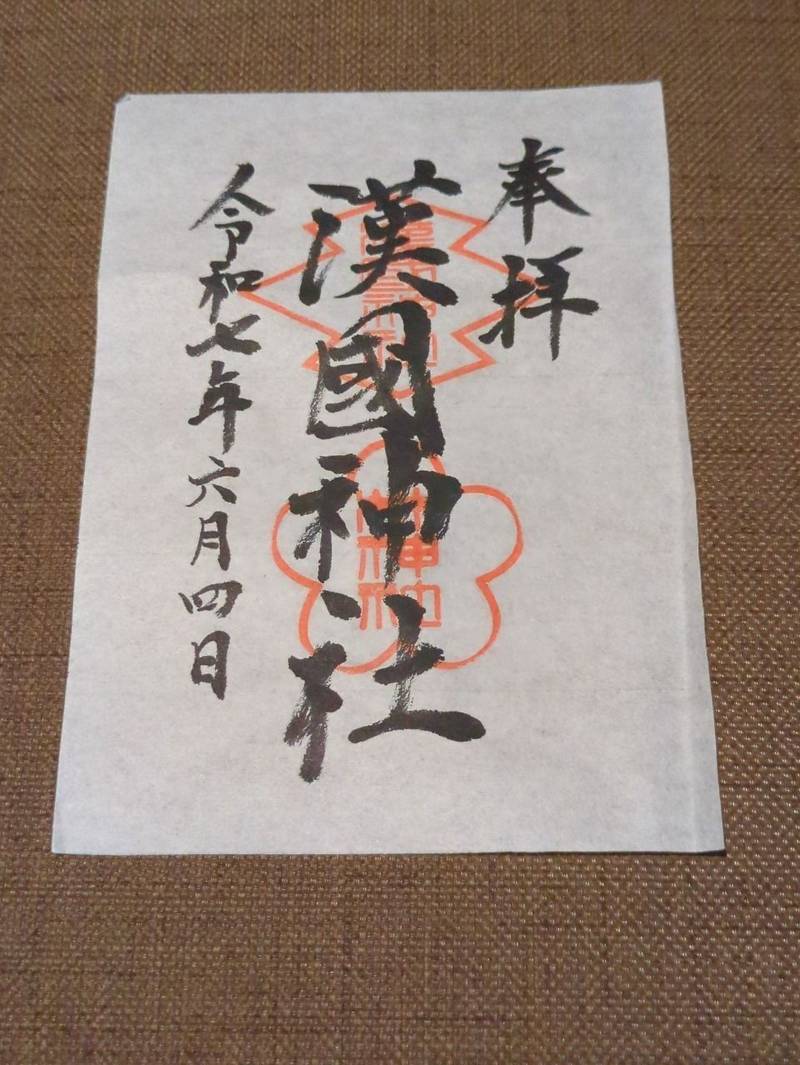 奉拝
漢國神社
林神社
令和七年六月四日